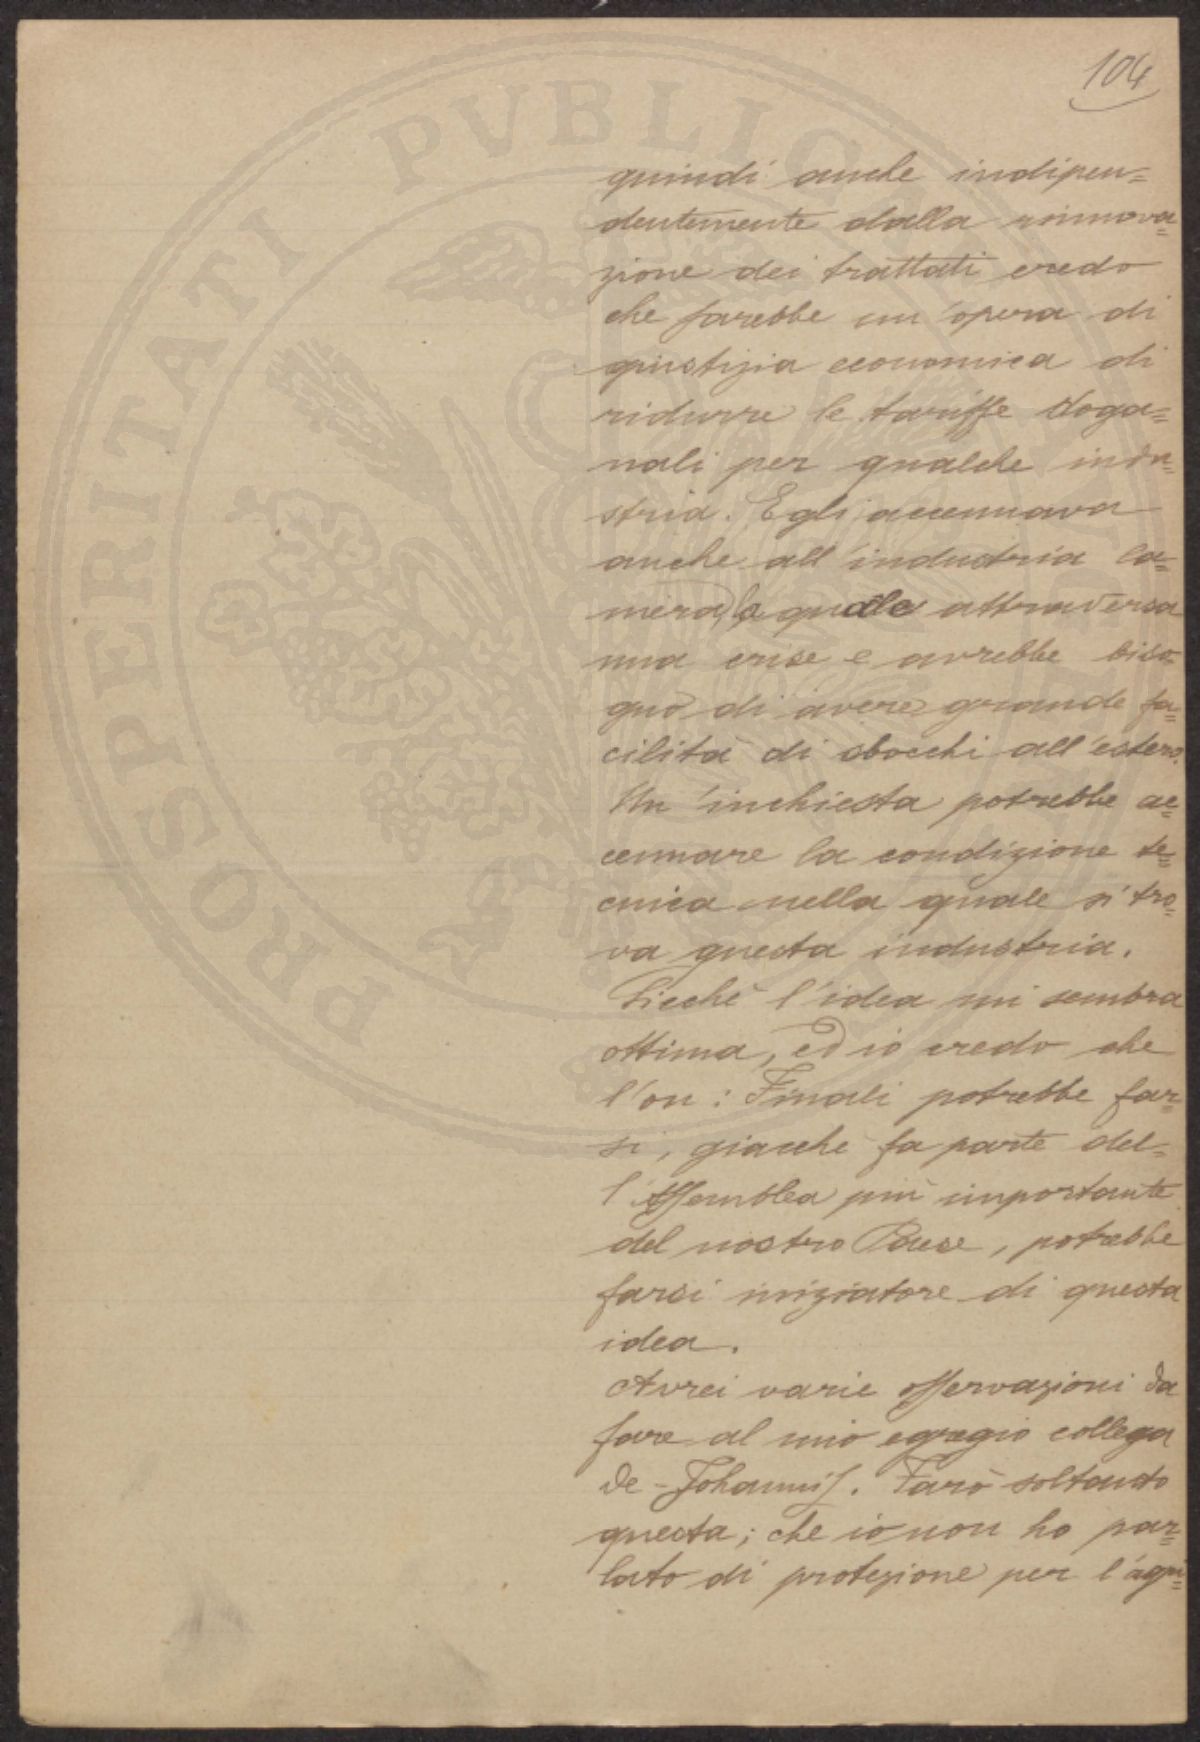 104
quindi anche indipen=
dentemente dalla rinnova=
zione dei trattati credo
che farebbe un'opera di
giustizia economica di
ridurre le tariffe doga=
nali per qualche indu=
stria. Egli accennava
anche all'industria la=
niera, la quale attraversa
una crise e avrebbe biso=
gno di avere grande fa=
cilità di sbocchi all'estero.
Un'inchiesta potrebbe ac=
cennare la condizione te=
cnica nella quale si tro=
va questa industria.
Sicchè l'idea mi sembra
ottima, ed io credo che
l'on: Finali potrebbe far=
si, giacchè fa parte del=
l'Assemblea più importante
del nostro Paese, potrebbe
farsi iniziatore di questa
idea.
Avrei varie osservazioni da
fare al mio egregio collega
de-Johannis. Farò soltanto
questa; che io non ho par=
lato di protezione per l'agri=
PROSPERITATI PVBLICAE